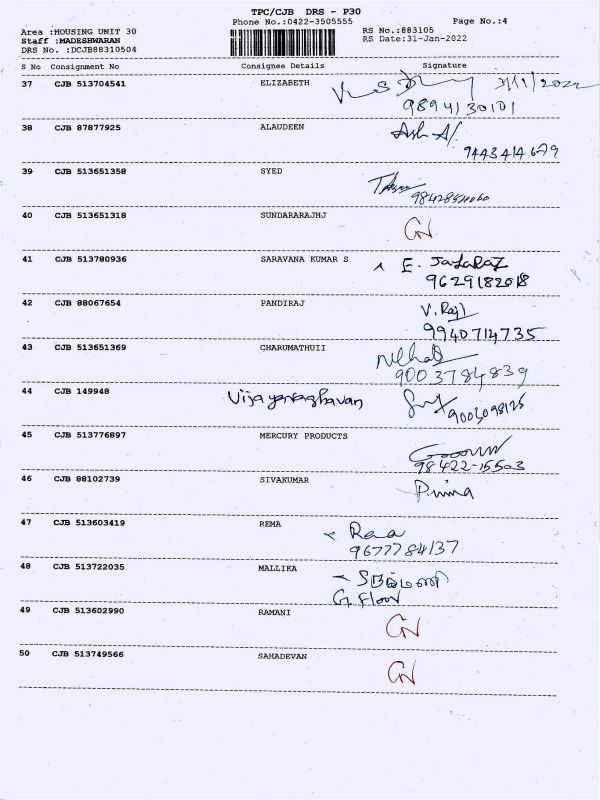 TPC/CJB DRS - P30
Phone No.:0422-3505555 Page No.:4
Area :HOUSING UNIT 30 RS No.:883105
Staff :MADESHWARAN RS Date:31-Jan-2022
DRS No. :DCJB88310504
S No Consignment No Consignee Details Signature
37 CJB 513704541 ELIZABETH
9894130101
38 CJB 87877925 ALAUDEEN
9443414679
39 CJB 513651358 SYED
40 CJB 513651318 SUNDARARAJHJ
41 CJB 513780936 SARAVANA KUMAR S E. Jayaraj
9629182018
42 CJB 88067654 PANDIRAJ V. Raj
9940714735
43 CJB 513651369 CHARUMATHUII
9003784839
44 CJB 149948 Vijayaraghavan
9003098125
45 CJB 513776897 MERCURY PRODUCTS
98422-15503
46 CJB 88102739 SIVAKUMAR
47 CJB 513603419 REMA
9677784137
48 CJB 513722035 MALLIKA
G. Floor
49 CJB 513602990 RAMANI
50 CJB 513749566 SAHADEVAN